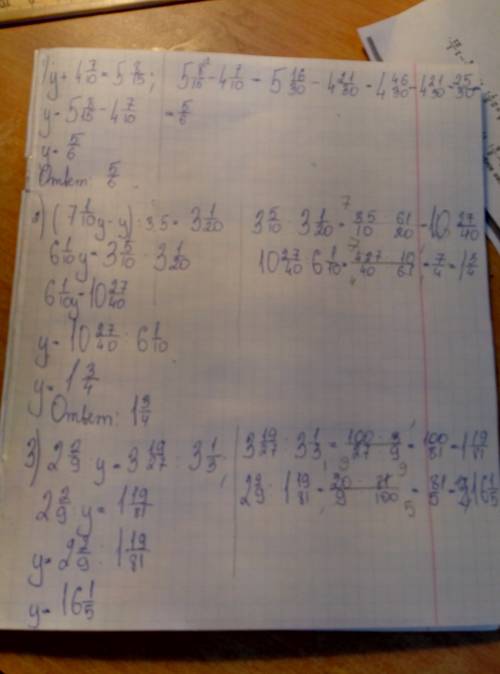 1) y + 4 7/10 = 5 8/15; 5 8/15 - 4 7/10 = 5 16/30 - 4 21/30 = 4 46/30 - 4 21/30 = 25/30 =
y = 5 8/15 - 4 7/10 = 5/6
y = 5/6
Ответ: 5/6.
2) (7 1/10 y - y) : 3,5 = 3 1/20 3 5/10 · 3 1/20 = 35/10 · 61/20 = 10 27/40
6 1/10 y = 3 5/10 · 3 1/20 10 27/40 : 6 1/10 = 427/40 · 10/61 = 7/4 = 1 3/4
6 1/10 y = 10 27/40
y = 10 27/40 : 6 1/10
y = 1 3/4
Ответ: 1 3/4
3) 2 2/9 : y = 3 19/27 : 3 1/3; 3 19/27 : 3 1/3 = 100/27 · 3/9 = 100/81 = 1 19/81
2 2/9 : y = 1 19/81 2 2/9 : 1 19/81 = 20/9 · 81/100 = 81/5 = 16 1/5
y = 2 2/9 : 1 19/81
y = 16 1/5